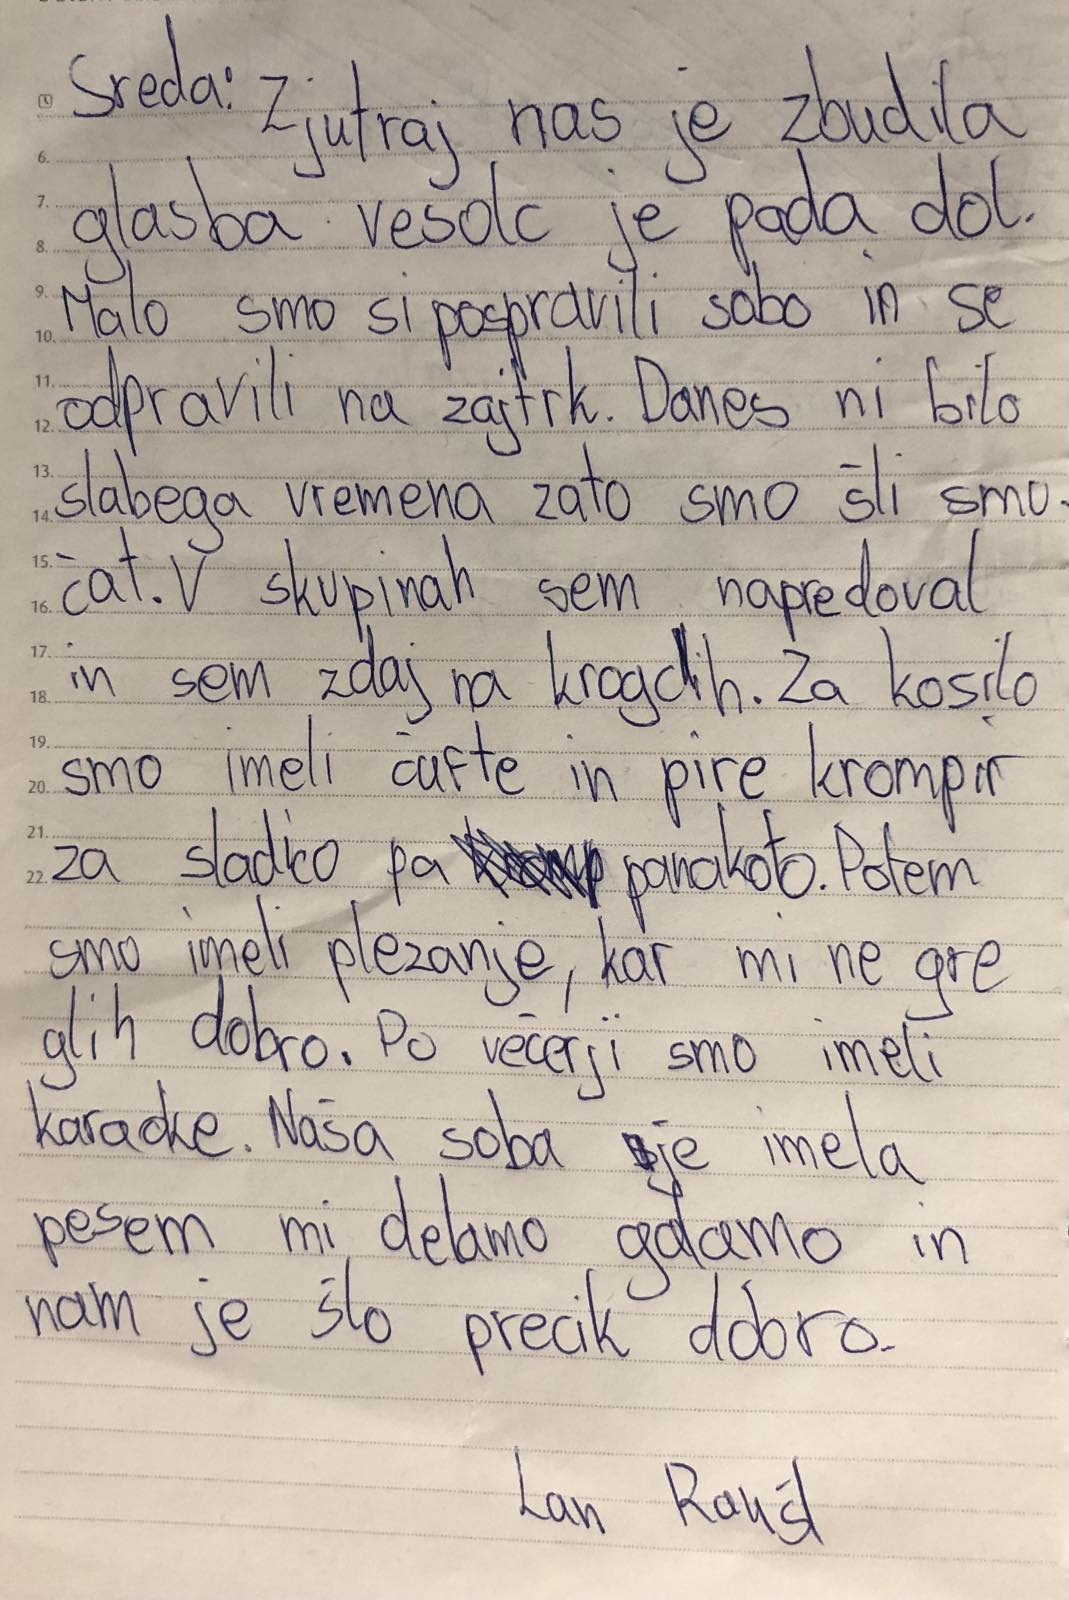 Sreda: Zjutraj nas je zbudila
6.
7. glasba vesolc je pada dol.
8.
9. Malo smo si pospravili sobo in se
10.
11. odpravili na zajtrk. Danes ni bilo
12.
13. slabega vremena zato smo šli smu-
14.
15. čat. V skupinah sem napredoval
16.
17. in sem zdaj na krogcih. Za kosilo
18.
19. smo imeli čufte in pire krompir
20.
21. za sladko pa panakoto. Potem
22.
smo imeli plezanje, kar mi ne gre
glih dobro. Po večerji smo imeli
karaoke. Naša soba je imela
pesem mi delamo galamo in
nam je šlo precik dobro.
Lan